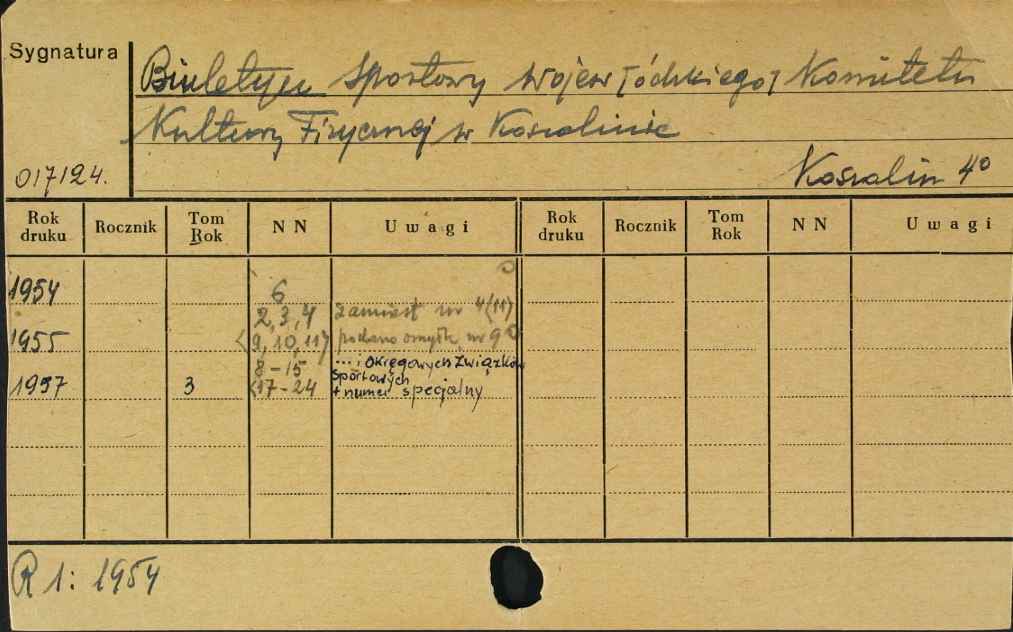 Sygnatura
Biuletyn Sportowy Wojewódzkiego Komitetu
Kultury Fizycznej w Koszalinie
017124.
Koszalin 4°
Rok druku Rocznik Tom Rok N N Uwagi Rok druku Rocznik Tom Rok N N Uwagi
1954 6
2, 3, 4 zamiast nr 4(11)
1955 <9, 10, 11> podano omyłk. nr 9
8-15 ...i Okręgowych Związków
Sportowych
1957 3 <17-24 + numer specjalny
R 1: 1954